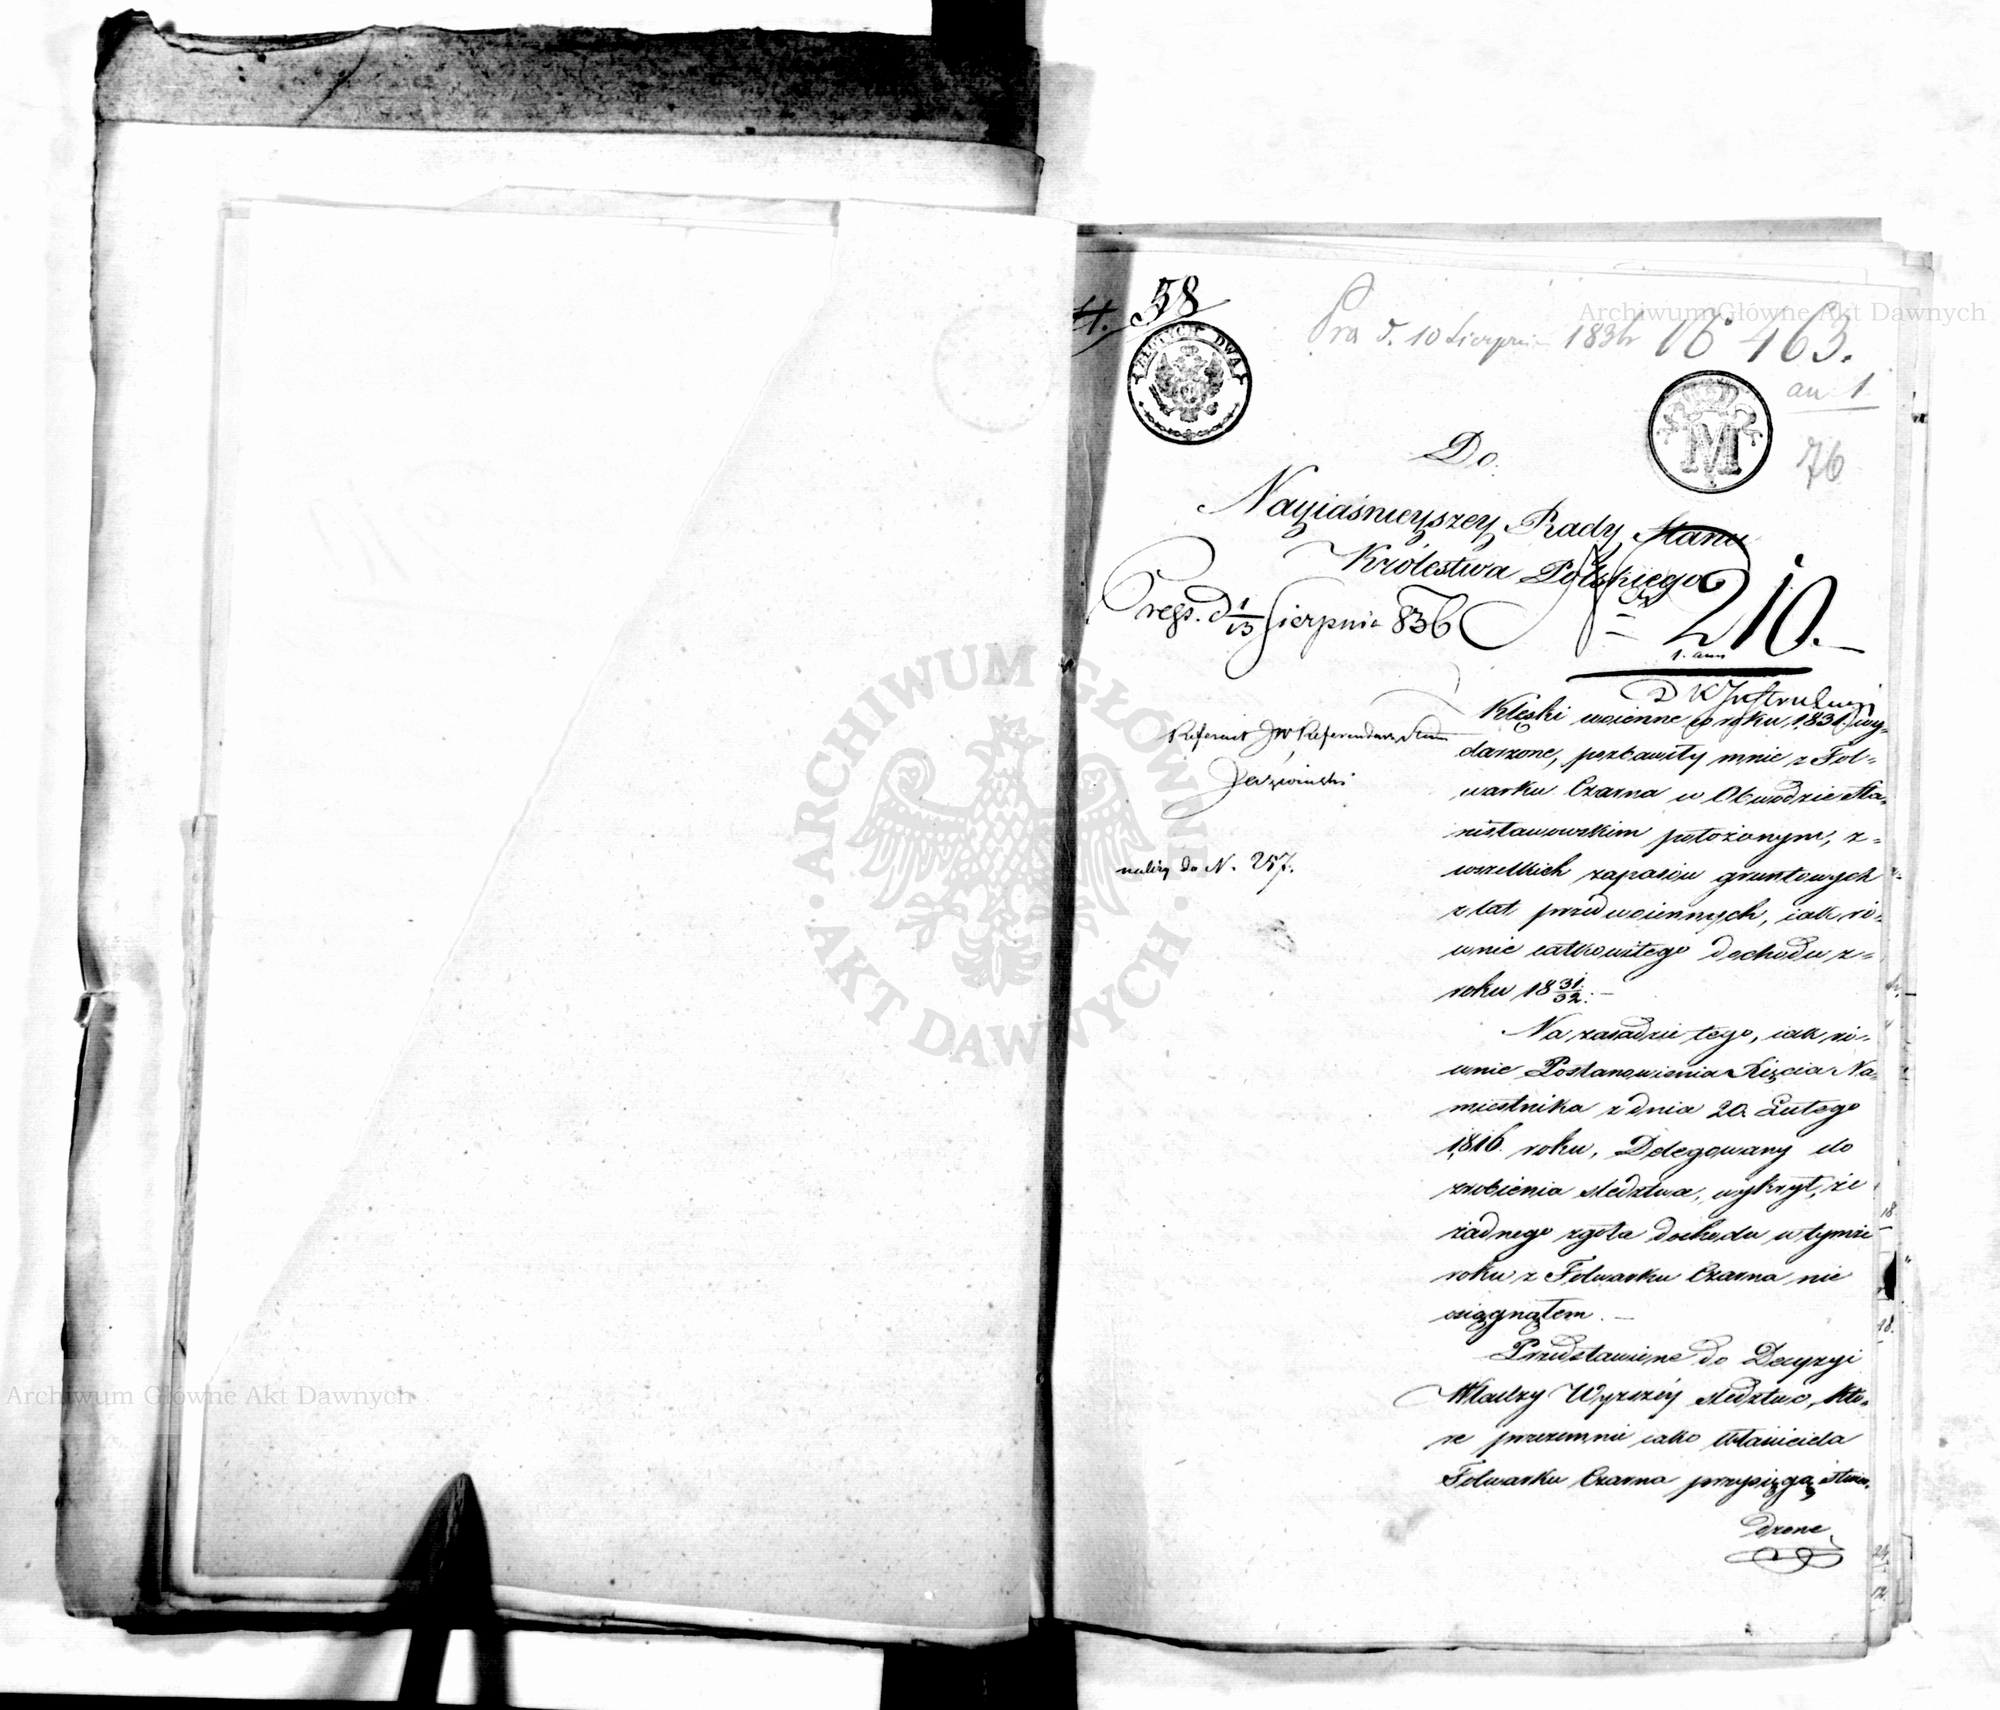 4. 58
ZŁOTYCH DWA
Pra d. 10 Sierpnia 1836 N 463.
an 1
76
M
Do
Nayiaśnieyszey Rady Stanu
Królestwa Polskiego
Preas. d 1/13 Sierpnia 836
N = 210.
1. ann
D K Instrukcyi
Referent JW Referendarz Stanu
należy do N. 257.
Klęski woienne w roku 1831. wy-
darzone, pozbawiły mnie z Fol-
warku Czarna w Obwodzie Sta-
nisławowskim położonym, z-
wszelkich zapasów gruntowych
z lat przedwoiennych, iak ró-
wnie całkowitego dochodu z-
roku 18 31/32. –
Na zasadzie tego, iak ró-
wnie Postanowienia Xięcia Na-
miestnika z dnia 20. Lutego
1816. roku, Delegowany do
zrobienia śledztwa, wykrył, że
żadnego zgoła dochodu w tymże
roku z Folwarku Czarna nie
osiągnąłem. –
Przedstawione do Decyzyi
Władzy Wyższéy śledztwo, któ-
re przezemnie iako Właściciela
Folwarku Czarna przysięgą stwier-
dzone
ARCHIWUM GŁÓWNE AKT DAWNYCH
Archiwum Główne Akt Dawnych
Archiwum Główne Akt Dawnych